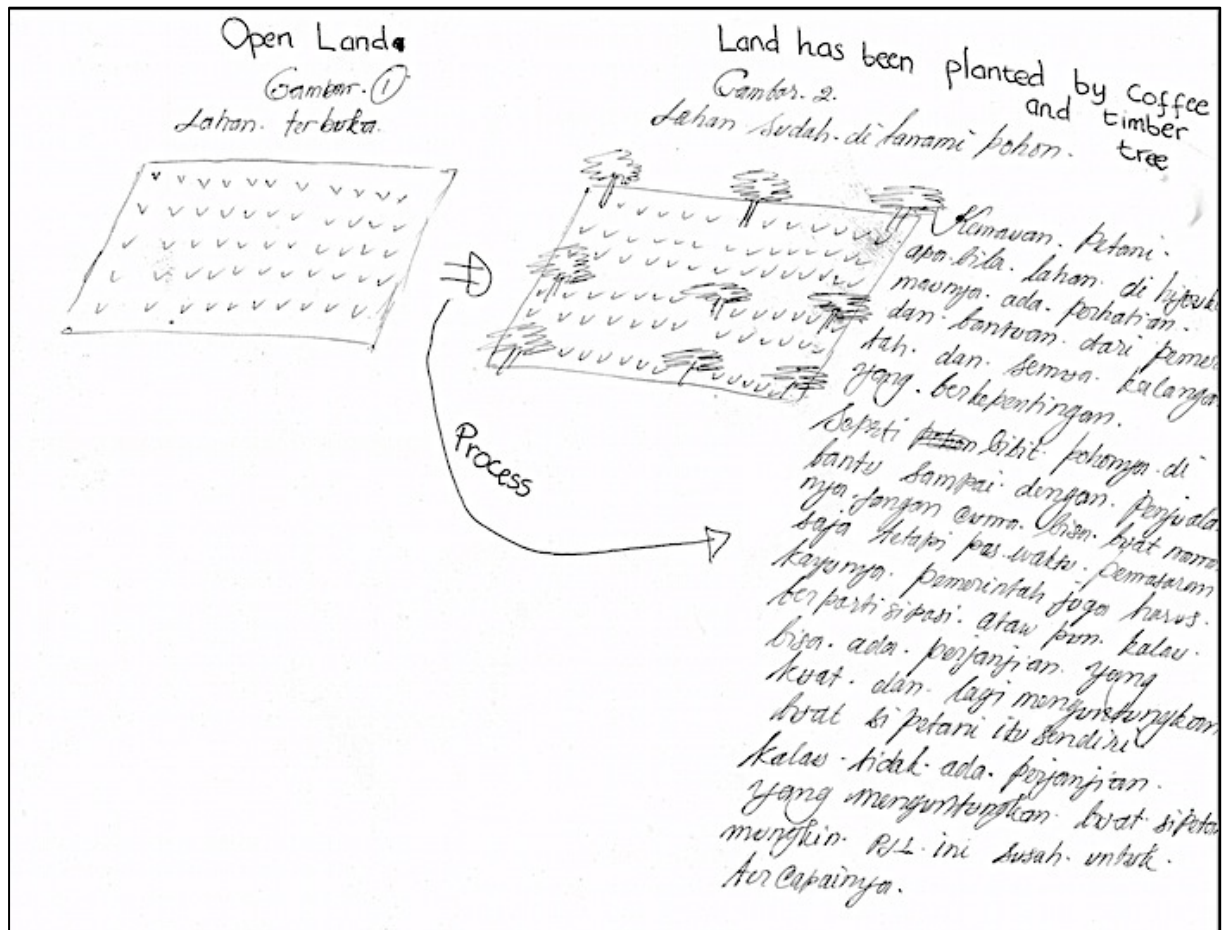 Open Land
Gambar. 1
Lahan. terbuka.
Land has been planted by Coffee
and timber
tree
Gambar. 2.
Lahan sudah. di tanami pohon.
Process
Kemauan. Petani.
apa. bila. lahan. di hijouk
maunya. ada. perhatian.
dan. bantuan. dari pemer
tah. dan. semua. kalanga
yang. berkepentingan.
Seperti bibit. pohonya. di
bantu sampai. dengan. penjuala
nya. Jangan cuma. bisa. buat
saja tetapi pas. waktu. pemasaran
kayunya. pemerintah juga harus.
berpartisipasi. ataw pun. kalau.
bisa. ada. perjanjian. yang
kuat. dan. lagi menguntungkan
buat si petani itu sendiri
kalau. tidak. ada. perjanjian.
yang menguntungkan. buat sipeta
mungkin. ini susah. untuk.
tercapainya.